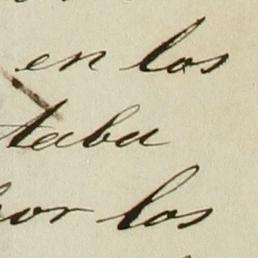 en los
taba
por los